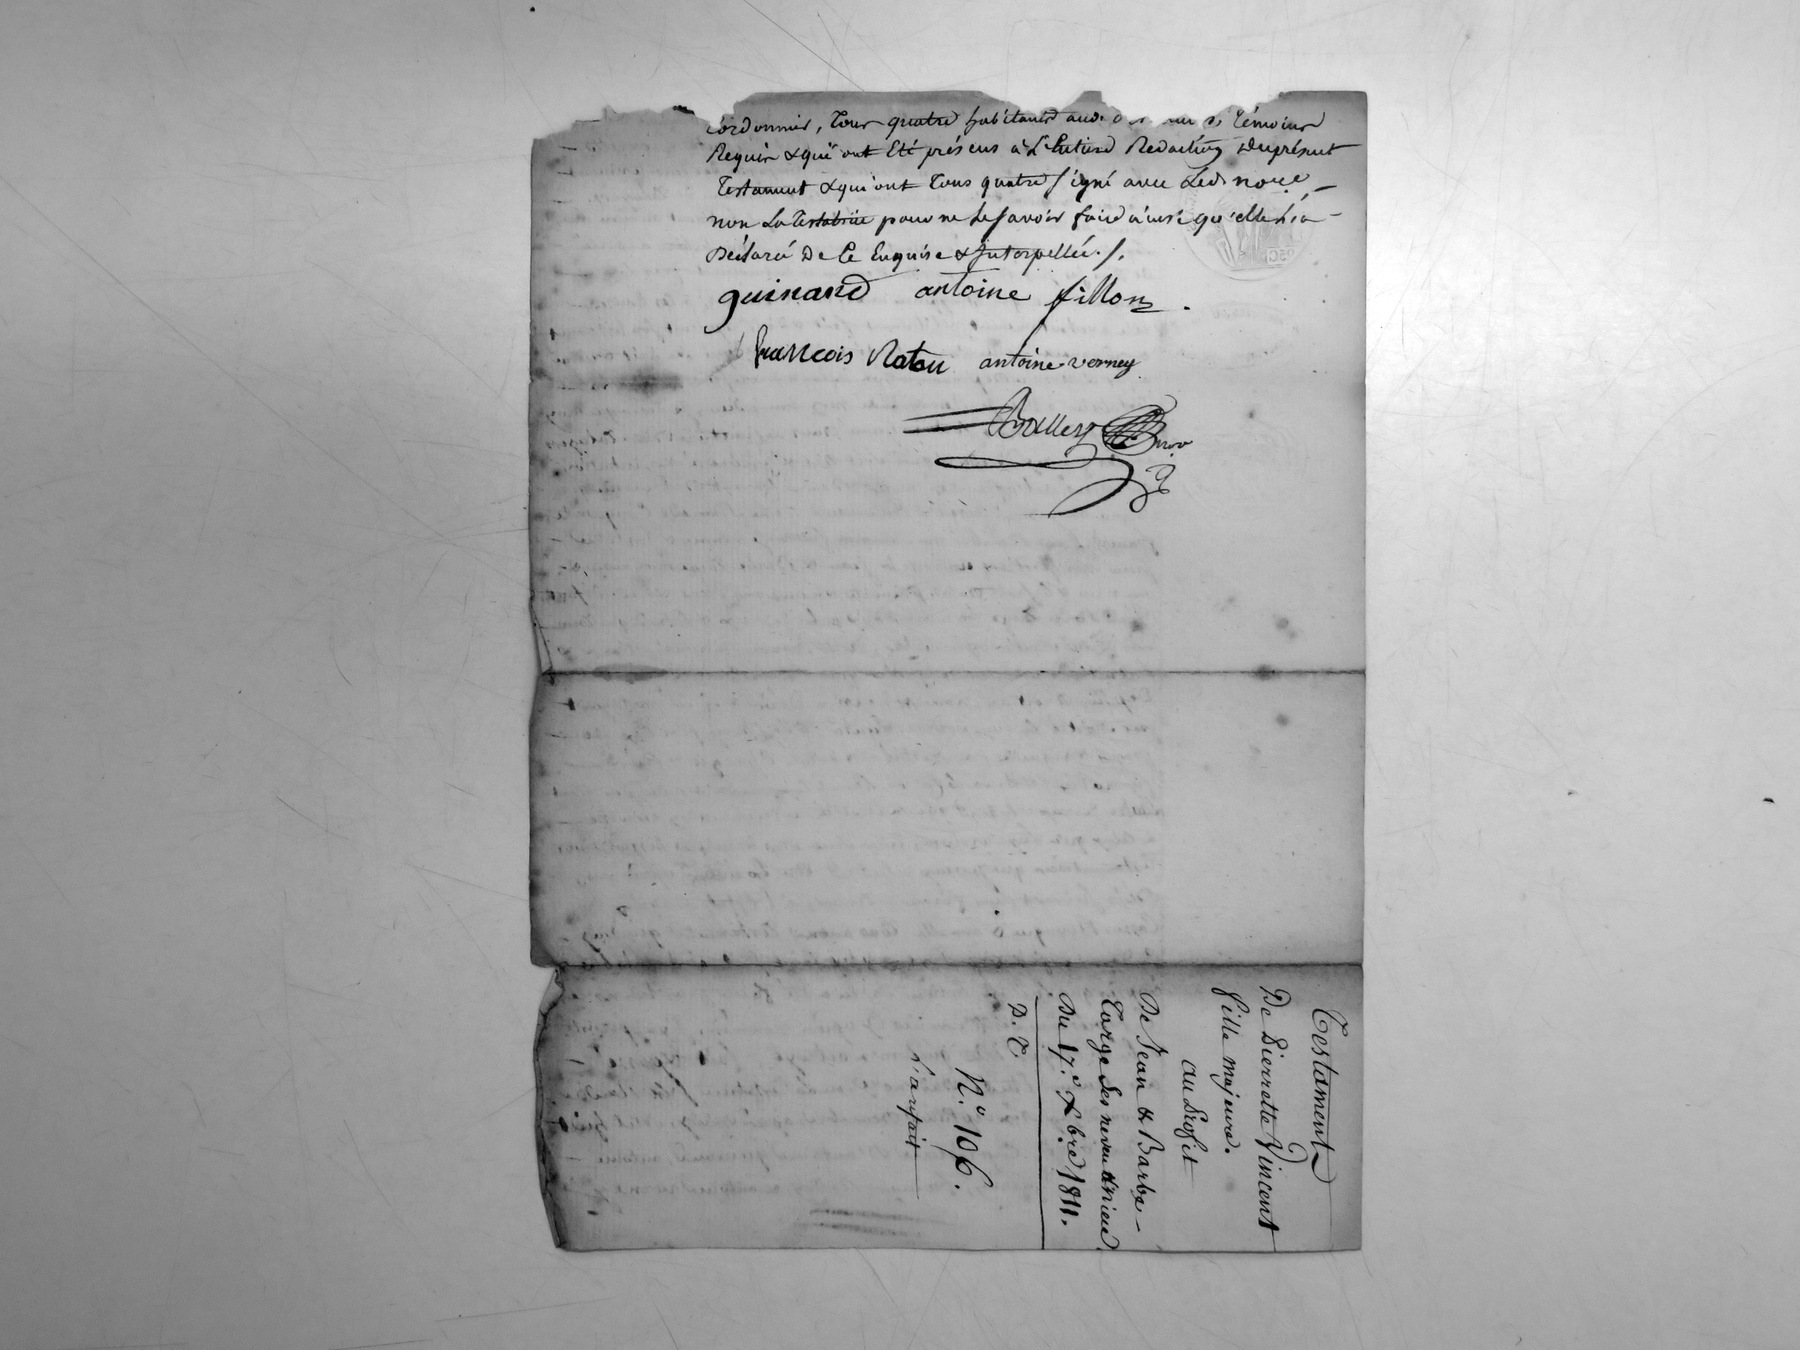 Cordonnier, Tous quatre habitants aud. témoins
Requis & qui ont Eté présens à L'Entiere Redaction Duprésent
Testament & qui ont Tous quatre signé avec Led. no.re
non La Testatrice pour ne Le savoir faire ainsi qu'elle L'a
Déclaré De Ce Enquise & Interpellée ./.
guinand antoine fillon
françois Ratou antoine verney
Testament
De Pierrette Vincent
fille majeure.
au Profit
De Jean & Barbe
Targe ses neveu & niece
Du 17.e Xbre 1811.
D. T
N.o 106.